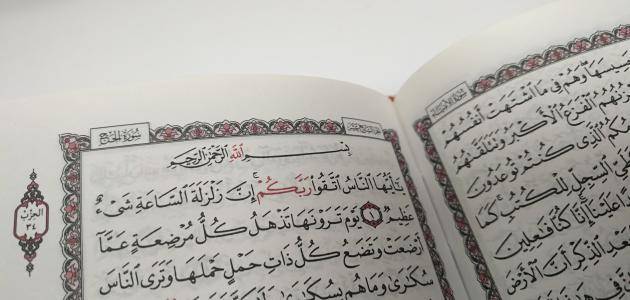 سُورَةُ الأَنبِيَاءِ
وَهُمْ فِي مَا ٱشْتَهَتْ أَنفُسُهُمْ
ٱلْفَزَعُ ٱلْأَكْبَرُ وَتَتَلَقَّىٰهُمُ
ٱلَّذِي كُنتُمْ تُوعَدُونَ
ٱلسِّجِلِّ لِلْكُتُبِ ۚ كَمَا
عَلَيْنَا ۚ إِنَّا كُنَّا فَٰعِلِينَ
بَعْدِ ٱلذِّكْرِ أَنَّ ٱلْأَرْضَ
الجزء السابع عشر
سُورَةُ الحَجِّ
بِسْمِ ٱللَّهِ ٱلرَّحْمَٰنِ ٱلرَّحِيمِ
يَٰٓأَيُّهَا ٱلنَّاسُ ٱتَّقُوا۟ رَبَّكُمْ ۚ إِنَّ زَلْزَلَةَ ٱلسَّاعَةِ شَىْءٌ
عَظِيمٌ ١ يَوْمَ تَرَوْنَهَا تَذْهَلُ كُلُّ مُرْضِعَةٍ عَمَّآ
أَرْضَعَتْ وَتَضَعُ كُلُّ ذَاتِ حَمْلٍ حَمْلَهَا وَتَرَى ٱلنَّاسَ
سُكَٰرَىٰ وَمَا هُم بِسُكَٰرَىٰ
الحزب
٣٤